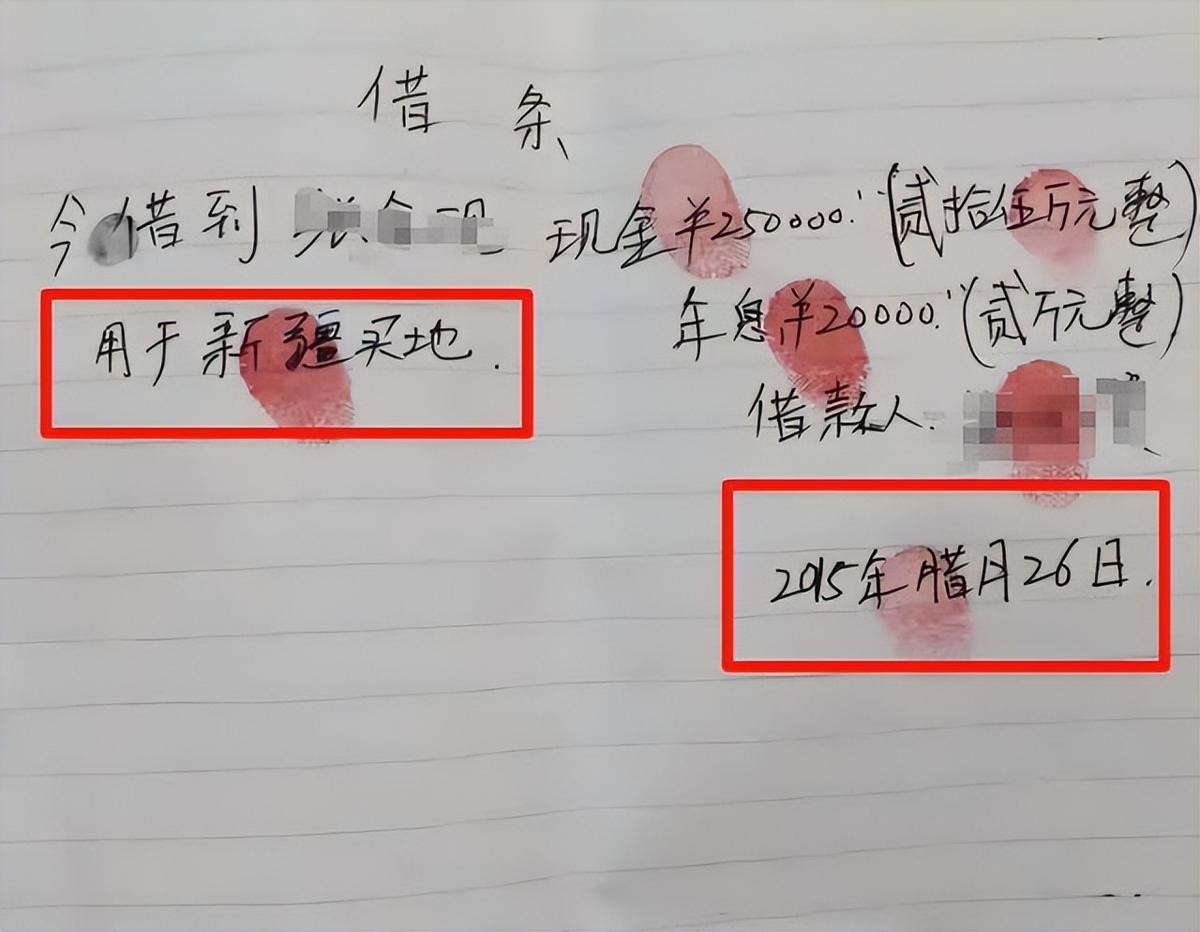 借条
今借到 现金¥250000.(贰拾伍万元整)
用于新疆买地. 年息¥20000.(贰万元整)
借款人.
2015年腊月26日.